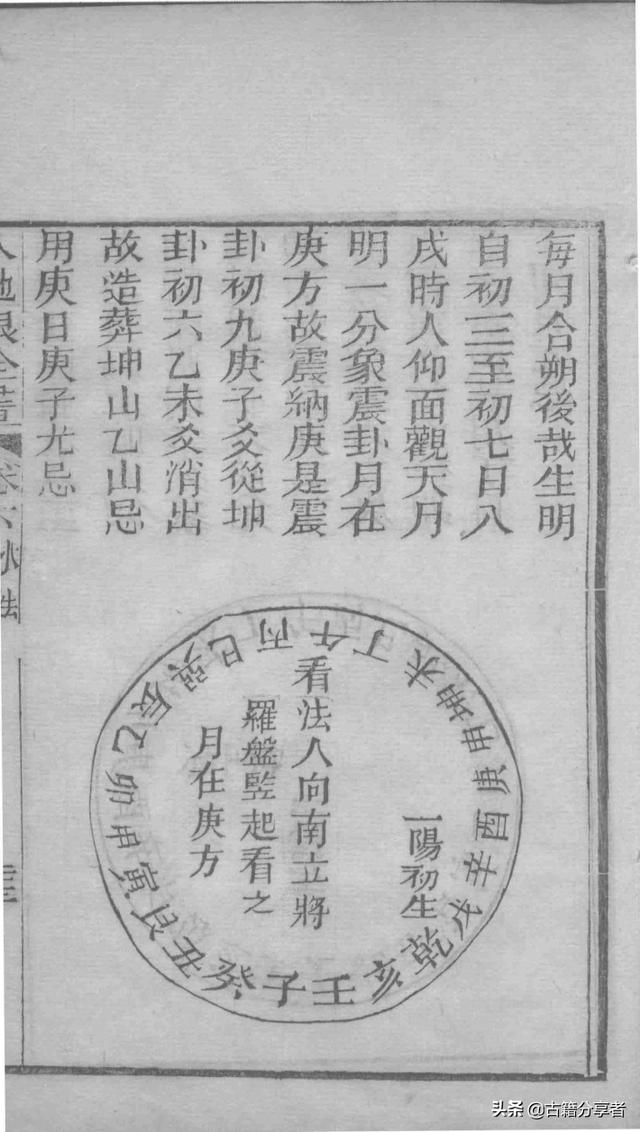 每月合朔後哉生明
自初三至初七日入
戌時人仰面觀天月
明一分象震卦月在
庚方故震納庚是震
卦初九庚子爻從坤
卦初六乙未爻消出
故造葬坤山乙山忌
用庚日庚子尤忌
看法人向南立將
羅盤竪起看之
月在庚方
一陽初生
午丁未坤申庚酉辛戌乾亥壬子癸丑艮寅甲卯乙辰巽巳丙
頭条 @古籍分享者